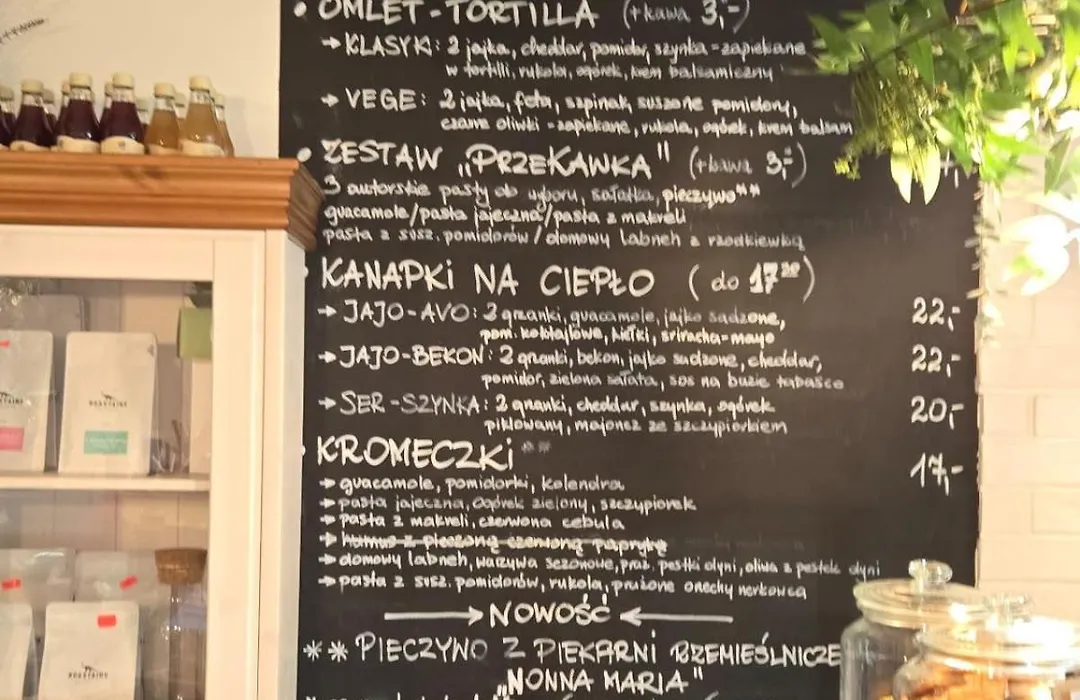 • OMLET-TORTILLA (+kawa 3,-)
→ KLASYK: 2 jajka, cheddar, pomidor, szynka - zapiekane
w tortilli, rukola, ogórek, krem balsamiczny
→ VEGE: 2 jajka, feta, szpinak, suszone pomidory,
czarne oliwki - zapiekane, rukola, ogórek, krem balsam
• ZESTAW „PRZEKAWKA" (+kawa 3,-)
3 autorskie pasty do wyboru, sałatka, pieczywo**
guacamole/pasta jajeczna/pasta z makreli
pasta z susz. pomidorów/domowy labneh z rzodkiewką
• KANAPKI NA CIEPŁO (do 17³⁰)
→ JAJO-AVO: 2 grzanki, guacamole, jajko sadzone, 22,-
pom. koktajlowe, kiełki, sriracha-mayo
→ JAJO-BEKON: 2 grzanki, bekon, jajko sadzone, cheddar, 22,-
pomidor, zielona sałata, sos na bazie tabasco
→ SER-SZYNKA: 2 grzanki, cheddar, szynka, ogórek 20,-
piklowany, majonez ze szczypiorkiem
• KROMECZKI** 17,-
→ guacamole, pomidorki, kolendra
→ pasta jajeczna, ogórek zielony, szczypiorek
→ pasta z makreli, czerwona cebula
→ humus z pieczoną czerwoną papryką
→ domowy labneh, warzywa sezonowe, praż. pestki dyni, oliwa z pestek dyni
→ pasta z susz. pomidorów, rukola, prażone orzechy nerkowca
→ NOWOŚĆ ←
** PIECZYWO Z PIEKARNI RZEMIEŚLNICZE
„NONNA MARIA"